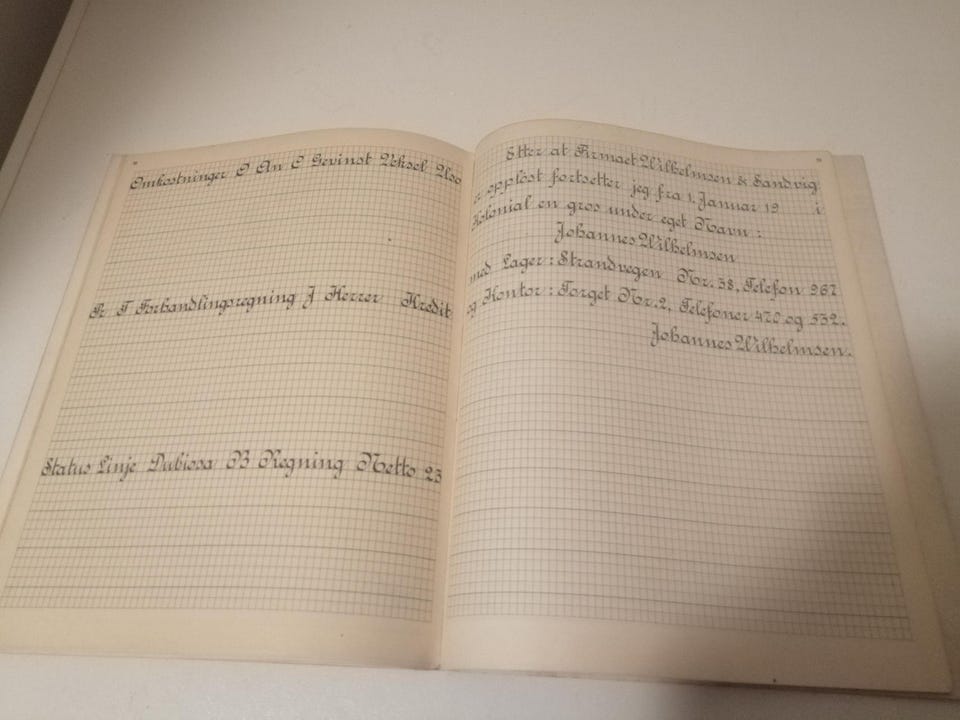 Omkostninger O An C Gevinst Veksel Uso
Pr T Forhandlingsregning J Herrer Kredit
Status Linje Dubiosa B Regning Netto 23
Etter at Firmaet Wilhelmsen & Sandvig
er oppløst fortsetter jeg fra 1. Januar 19 i
Kolonial en gros under eget Navn:
Johannes Wilhelmsen
med Lager: Strandvegen Nr. 38, Telefon 967
og Kontor: Torget Nr. 2, Telefoner 470 og 532.
Johannes Wilhelmsen.